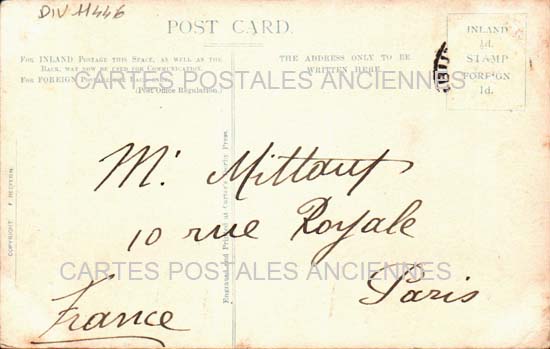 DIV 11446
POST CARD.
FOR INLAND POSTAGE THIS SPACE, AS WELL AS THE
BACK, MAY NOW BE USED FOR COMMUNICATION.
FOR FOREIGN POSTAGE THE BACK ONLY.
(Post Office Regulation.)
THE ADDRESS ONLY TO BE
WRITTEN HERE
INLAND
½d.
STAMP
FOREIGN
1d.
CARTES POSTALES ANCIENNES
Mr.
10 rue Royale
Paris
France
CARTES POSTALES ANCIENNES
COPYRIGHT F. REDFERN.
Engraved and Printed at Press.